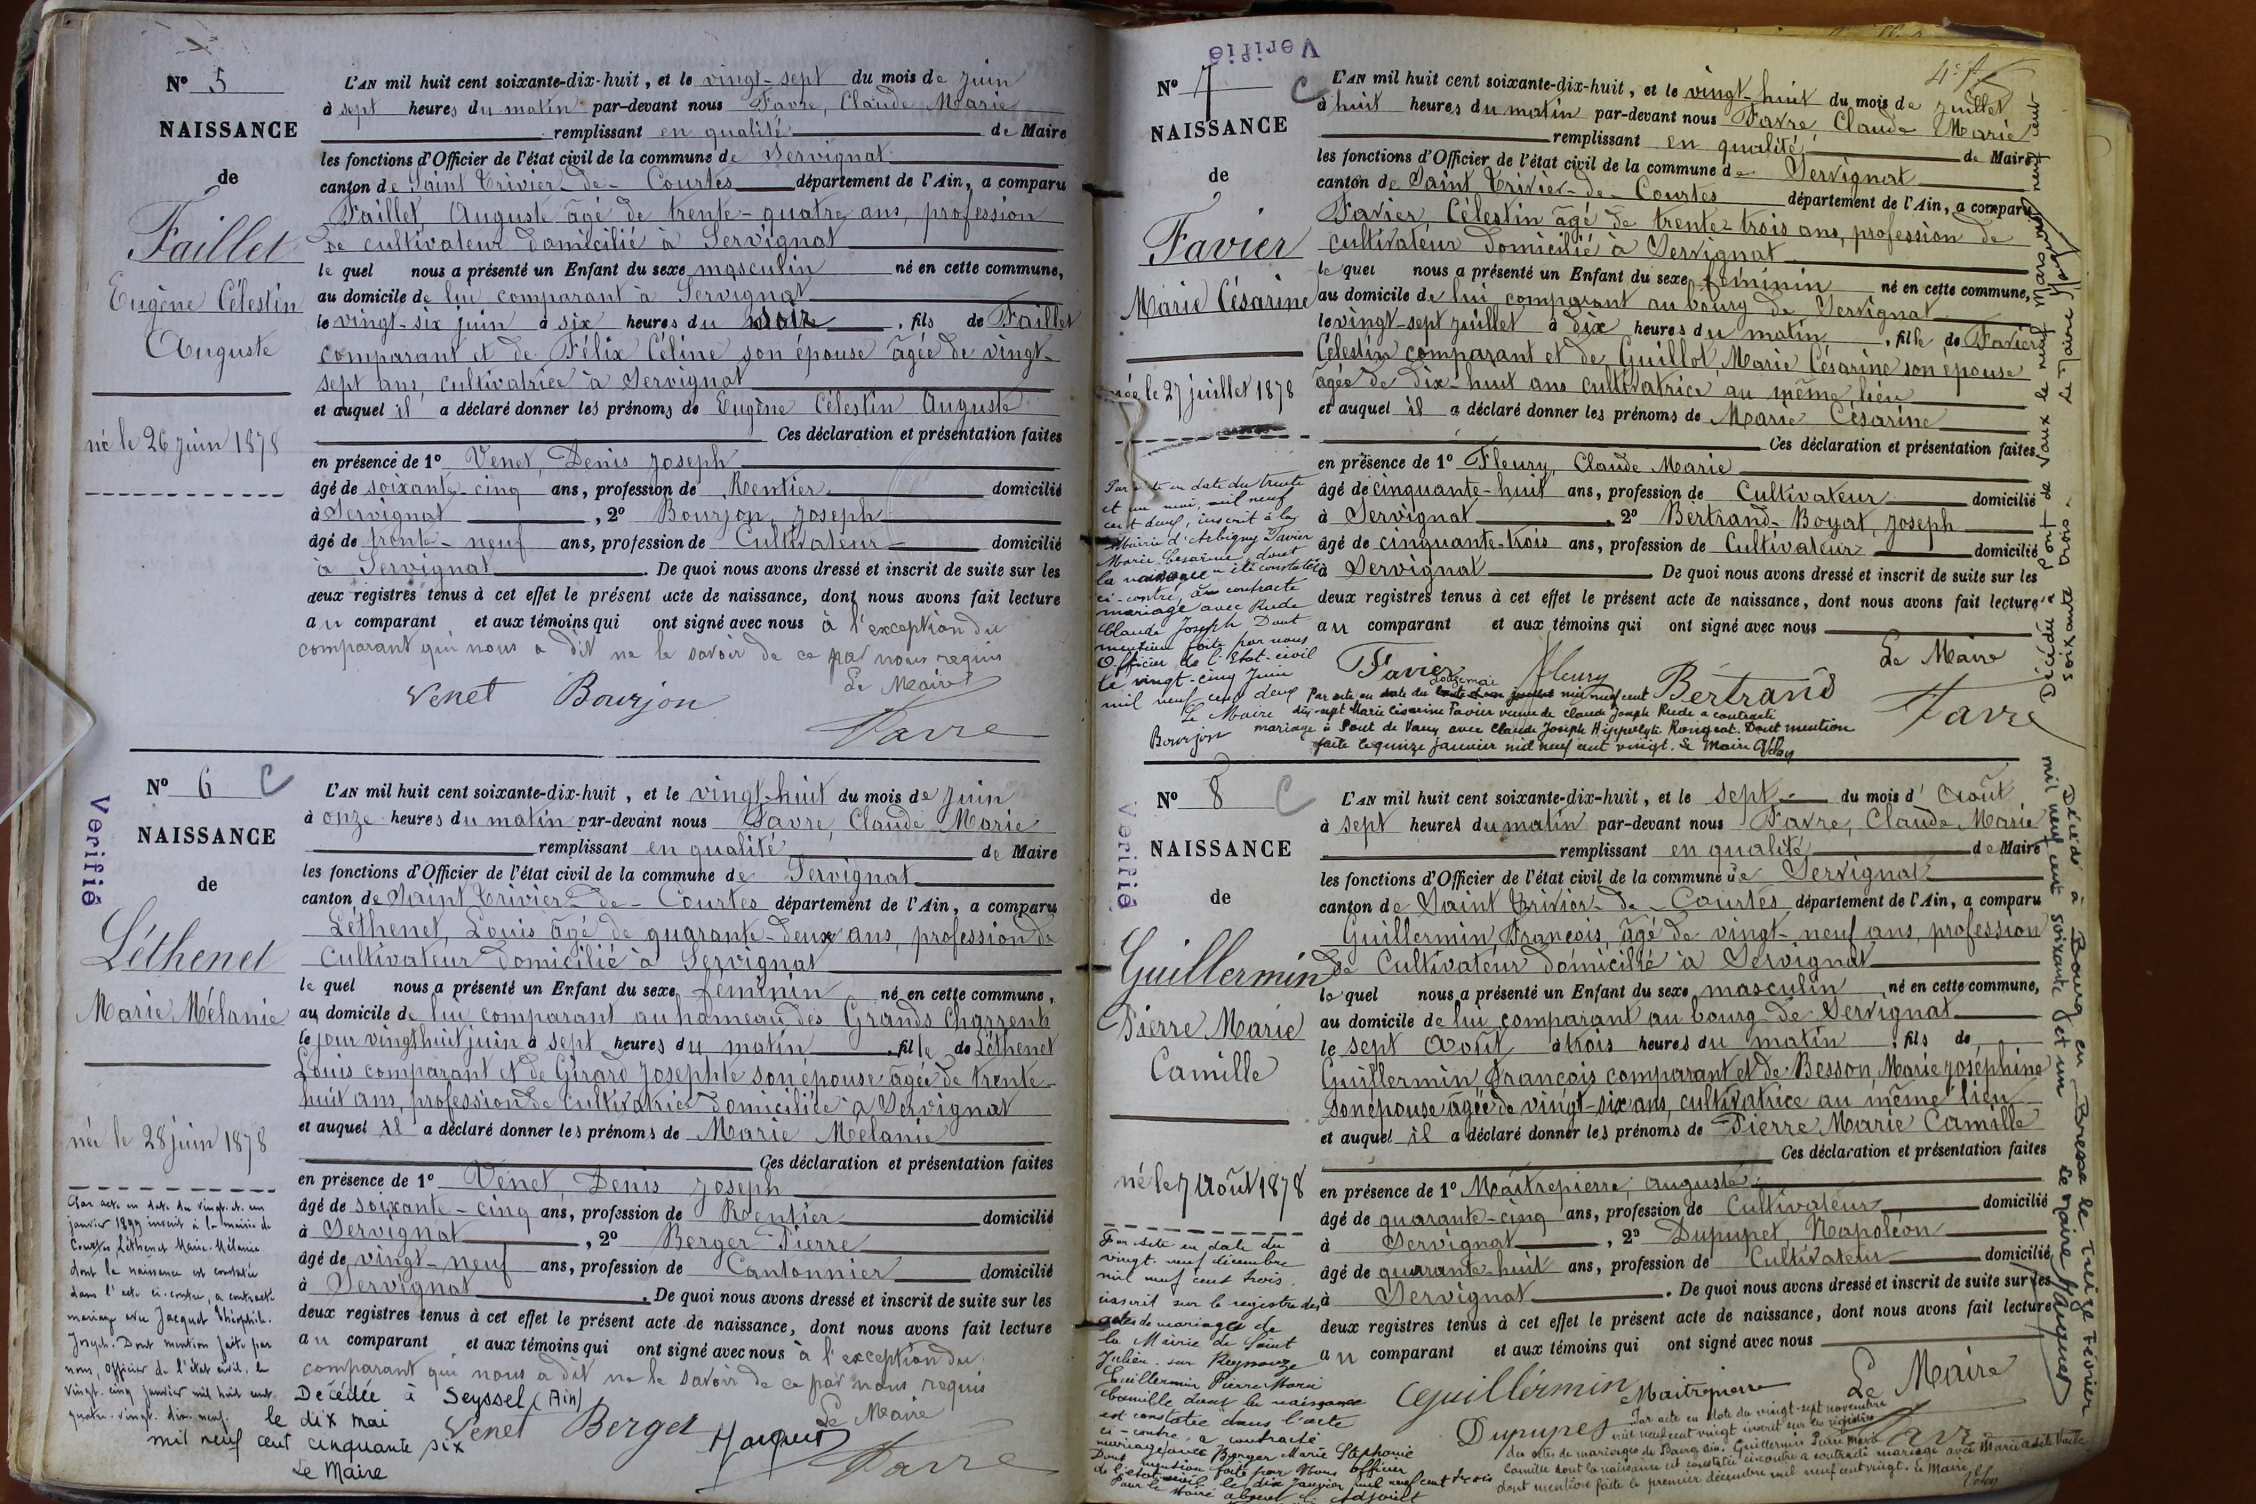 Nº 5
NAISSANCE
de
Faillet
Eugène Célestin
Auguste
né le 26 juin 1878
L'AN mil huit cent soixante-dix-huit, et le vingt-sept du mois de juin
à sept heures du matin par-devant nous Favre, Claude Marie
remplissant en qualité de Maire
les fonctions d'Officier de l'état civil de la commune de Servignat
canton de Saint Trivier-de-Courtes département de l'Ain, a comparu
Faillet, Auguste âgé de trente-quatre ans, profession
de cultivateur domicilié à Servignat
le quel nous a présenté un Enfant du sexe masculin né en cette commune,
au domicile de lui comparant à Servignat
le vingt-six juin à six heures du soir, fils de Faillet
comparant et de Félix Céline son épouse âgée de vingt-
sept ans, cultivatrice à Servignat
et auquel il a déclaré donner les prénoms de Eugène Célestin Auguste
Ces déclaration et présentation faites
en présence de 1º Venet, Denis Joseph
âgé de soixante-cinq ans, profession de Rentier domicilié
à Servignat, 2º Bourjon, Joseph
âgé de trente-neuf ans, profession de Cultivateur domicilié
à Servignat. De quoi nous avons dressé et inscrit de suite sur les
deux registres tenus à cet effet le présent acte de naissance, dont nous avons fait lecture
au comparant et aux témoins qui ont signé avec nous à l'exception du
comparant qui nous a dit ne le savoir de ce par nous requis
Le Maire
Venet Bourjon
Favre
Nº 6 C
Verifié
NAISSANCE
de
Léthenet
Marie Mélanie
née le 28 juin 1878
Par acte en date du vingt-et-un
janvier 1899 inscrit à la mairie de
Courtes Léthenet Marie-Mélanie
dont la naissance est constatée
dans l'acte ci-contre, a contracté
mariage avec Jacquet Théophile-
Joseph. Dont mention faite par
nous, officier de l'état civil, le
vingt-cinq janvier mil huit cent
quatre-vingt-dix-neuf.
L'AN mil huit cent soixante-dix-huit, et le vingt-huit du mois de juin
à onze heures du matin par-devant nous Favre, Claude Marie
remplissant en qualité de Maire
les fonctions d'Officier de l'état civil de la commune de Servignat
canton de Saint Trivier-de-Courtes département de l'Ain, a comparu
Léthenet, Louis âgé de quarante-deux ans, profession de
Cultivateur domicilié à Servignat
le quel nous a présenté un Enfant du sexe féminin né en cette commune,
au domicile de lui comparant au hameau des Grands Charrents
le jour vingt huit juin à sept heures du matin, fille de Léthenet
Louis comparant et de Girard Josephte son épouse âgée de trente-
huit ans, profession de Cultivatrice domiciliée à Servignat
et auquel il a déclaré donner les prénoms de Marie Mélanie
Ces déclaration et présentation faites
en présence de 1º Venet, Denis Joseph
âgé de soixante-cinq ans, profession de Rentier domicilié
à Servignat, 2º Berger Pierre
âgé de vingt-neuf ans, profession de Cantonnier domicilié
à Servignat. De quoi nous avons dressé et inscrit de suite sur les
deux registres tenus à cet effet le présent acte de naissance, dont nous avons fait lecture
au comparant et aux témoins qui ont signé avec nous à l'exception du
comparant qui nous a dit ne le savoir de ce par nous requis
Le Maire
Venet Berger
Favre
Décédée à Seyssel (Ain)
le dix mai
mil neuf cent cinquante six
Le Maire
Verifié
Nº 7 C
NAISSANCE
de
Favier
Marie Césarine
née le 27 juillet 1878
Par acte en date du trente
et un mai, mil neuf
cent deux, inscrit à la
Mairie d'Arbigny Favier
Marie Césarine dont
la naissance a été constatée
ci-contre, a contracté
mariage avec Rude
Claude Joseph Dont
mention faite par nous
Officier de l'Etat-civil
le vingt-cinq Juin
mil neuf cent deux
Le Maire
Bourjon
L'AN mil huit cent soixante-dix-huit, et le vingt-huit du mois de juillet
à huit heures du matin par-devant nous Favre, Claude Marie
remplissant en qualité de Maire
les fonctions d'Officier de l'état civil de la commune de Servignat
canton de Saint Trivier-de-Courtes département de l'Ain, a comparu
Favier, Célestin âgé de trente-trois ans, profession de
cultivateur domicilié à Servignat
le quel nous a présenté un Enfant du sexe féminin né en cette commune,
au domicile de lui comparant au bourg de Servignat
le vingt-sept juillet à dix heures du matin, fille de Favier
Célestin comparant et de Guillot, Marie Césarine son épouse
âgée de dix-huit ans cultivatrice au même lieu
et auquel il a déclaré donner les prénoms de Marie Césarine
Ces déclaration et présentation faites
en présence de 1º Fleury, Claude Marie
âgé de cinquante-huit ans, profession de Cultivateur domicilié
à Servignat, 2º Bertrand-Boyat, Joseph
âgé de cinquante-trois ans, profession de Cultivateur domicilié
à Servignat De quoi nous avons dressé et inscrit de suite sur les
deux registres tenus à cet effet le présent acte de naissance, dont nous avons fait lecture
au comparant et aux témoins qui ont signé avec nous
Le Maire
Favier Fleury Bertrand
Favre
Par acte en date du douze mai mil neuf cent
dix-sept Marie Césarine Favier veuve de Claude Joseph Rude a contracté
mariage à Pont de Vaux avec Claude Joseph Hippolyte Rongeat. Dont mention
faite le quinze janvier mil neuf cent vingt. Le Maire
Décédée à Pont-de-Vaux le neuf mars mil neuf cent
soixante trois. Le Maire
Nº 8 C
Verifié
NAISSANCE
de
Guillermin
Pierre Marie
Camille
né le 7 Août 1878
Par acte en date du
vingt-neuf décembre
mil neuf cent trois,
inscrit sur le registre des
actes de mariage de
la Mairie de Saint
Julien-sur Reyssouze
Guillermin Pierre Marie
Camille dont la naissance
est constatée dans l'acte
ci-contre, a contracté
mariage avec Marie Stéphanie
Dont mention faite par Nous officier
de l'état-civil le dix Janvier mil neuf cent
Pour le Maire l'Adjoint
L'AN mil huit cent soixante-dix-huit, et le sept du mois d'Août
à sept heures du matin par-devant nous Favre, Claude Marie
remplissant en qualité de Maire
les fonctions d'Officier de l'état civil de la commune de Servignat
canton de Saint Trivier-de-Courtes département de l'Ain, a comparu
Guillermin, François, âgé de vingt-neuf ans, profession
de Cultivateur domicilié à Servignat
le quel nous a présenté un Enfant du sexe masculin né en cette commune,
au domicile de lui comparant au bourg de Servignat
le sept Août à trois heures du matin, fils de
Guillermin, François comparant et de Besson, Marie Joséphine
son épouse âgée de vingt-six ans, cultivatrice au même lieu
et auquel il a déclaré donner les prénoms de Pierre Marie Camille
Ces déclaration et présentation faites
en présence de 1º Maîtrepierre, Auguste
âgé de quarante-cinq ans, profession de Cultivateur domicilié
à Servignat, 2º Dupupet, Napoléon
âgé de quarante-huit ans, profession de Cultivateur domicilié
à Servignat. De quoi nous avons dressé et inscrit de suite sur les
deux registres tenus à cet effet le présent acte de naissance, dont nous avons fait lecture
au comparant et aux témoins qui ont signé avec nous
Guillermin Maitrepierre Le Maire
Dupupet Favre
Par acte en date du vingt-sept novembre
mil neuf cent vingt inscrit sur les registres
des actes de mariages de Bourg Ain. Guillermin Pierre Marie
Camille dont la naissance est constatée ci-contre a contracté mariage avec Marie
dont mention faite le premier décembre mil neuf cent vingt. Le Maire
Décédé à Bourg en Bresse le treize février
mil neuf cent soixante et un Le Maire